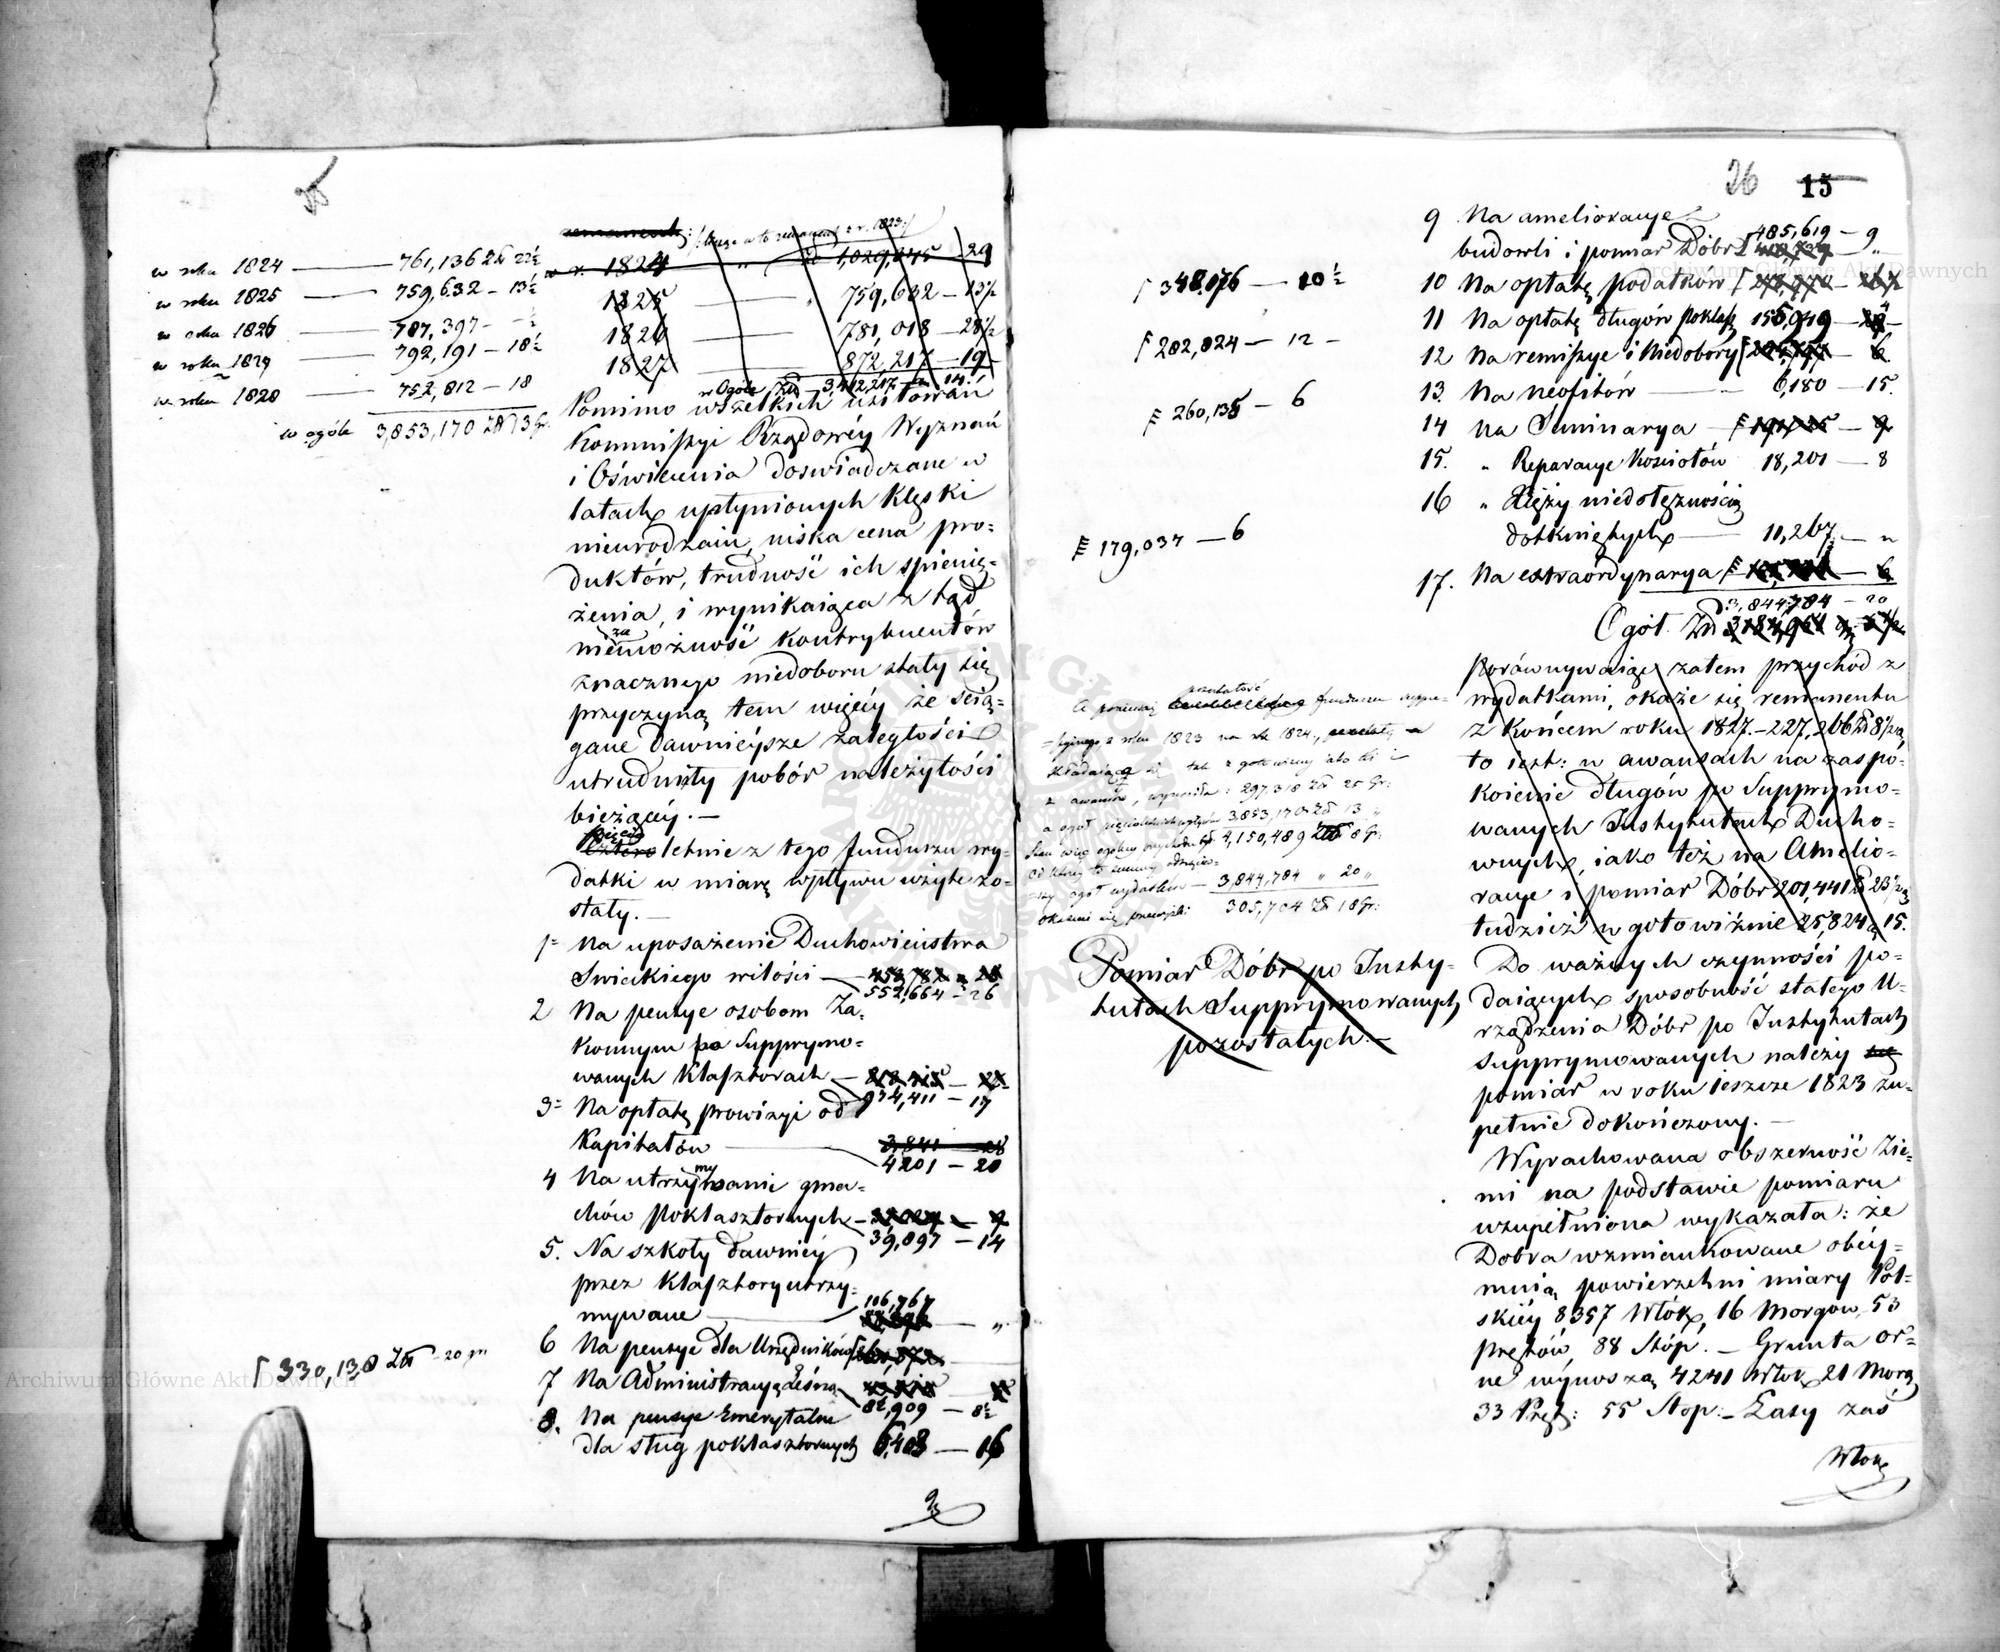 w roku 1824 — 761,136 Zł 22½
w roku 1825 — 759,632 — 13½
w roku 1826 — 787,397 — ½
w roku 1827 — 792,191 — 18½
w roku 1828 — 752,812 — 18
w ogóle 3,853,170 Zł 13 gr.
f 330,138 Zł — 20 gr
remanent z r. 1823:/
w r. 1824 " 1,029,245 — 29
1825 — 759,632 — 13½
1826 — 781,018 — 28½
1827 — 872,217 — 19
w Ogóle Zł 3,442,217 14
Pomimo wszelkich usiłowań
Kommissyi Rządowéy Wyznań
i Oświecenia doswiadczane w
latach upłynionych klęski
nieurodzaiu, niska cena pro=
duktów, trudność ich spienię=
żenia, i wynikaiąca z tąd
niezamożność kontrybuentów
znacznego niedoboru stały się
przyczyną tem więcéy że scią=
gane dawnieysze zaległości
utrudniły pobór należytości
bieżącéy. —
pięcio
Cztero letnie z tego funduszu wy=
datki w miarę wpływu użyte zo=
stały. —
1= Na uposażenie Duchowieństwa
Swieckiego wilości — 458,782 " 28
552,664 — 26
2 Na pensye osobom Za=
konnym po Supprymo=
wanych Klasztorach —
934,411 — 17
3= Na opłatę prowizyi od
Kapitałów — 3,841 — 28
4201 — 20
4 Na utrzymanie gma=
chów poklasztornych —
39,897 — 14
5. Na szkoły dawniéy
przez Klasztory utrzy=
mywane — 106,767 — "
6 Na pensye dla Urzędników
7 Na Administracyą Leśną
82,909 — 8½
8. Na pensye Emerytalne
dla sług poklasztornych 6,403 — 16
9
26 15
f 348,176 — 10½
f 282,824 — 12 —
F 260,135 — 6
F 179,037 — 6
A ponieważ pozostałość funduszu suppre=
ssyjnego z roku 1823 na rok 1824,
składaiąca się tak z gotowizny iako też i
z awansów, wynosiła: 297,318 Zł 25 Gr:
a ogół pięcioletnich wpływów 3,853,170 Zł 13 "
4,150,489 Zł 8 Gr:
ogół wydatków — 3,844,784 " 20 "
okaże się przewyżki 305,704 Zł 18 Gr:
Pomiar Dóbr po Insty=
tutach Supprymowanych
pozostałych. —
9 Na amelioracye
budowli i pomiar Dóbr 485,619 — 9
10 Na opłatę podatków
11 Na opłatę długów poklasz. 155,949
12 Na remissye i Niedobory — 6
13. Na neofitów — 6,180 — 15.
14 Na Seminarya — 9
15. " Reparacye Kosciołów 18,201 — 8
16 " Xięży niedołęznością
dotkniętych — 11,267 — "
17. Na extraordynarya — 6
3,844,784 — 20
Ogół Zł 3,184,964
Porównywaiąc zatem przychód z
wydatkami, okaże się remanentu
z końcem roku 1827. — 227,266 Zł 8½ gr,
to iest: w awansach na zaspo=
koienie długów po Supprymo=
wanych Instytutach Ducho=
wnych, iako też na Amelio=
racye i pomiar Dóbr 201,441 Zł 23½ gr
tudzież w gotowiźnie 25,824 " 15.
Do ważnych czynności po=
daiących sposobność stałego U=
rządzenia Dóbr po Instytutach
supprymowanych należy
pomiar w roku ieszcze 1823 zu=
pełnie dokończony. —
Wyrachowana obszerność Zie=
mi na podstawie pomiaru
uzupełniona wykazała: że
Dobra wzmiankowane obéy=
muią powierzchni miary Pol=
skiéy 8357 Włók, 16 Morgów, 53
prętów, 88 Stóp. — Grunta or=
ne wynoszą 4241 Włok 21 Morg
33 Pręt: 55 Stop: — Łasy zaś
Włok
Archiwum Główne Akt Dawnych
Archiwum Główne Akt Dawnych